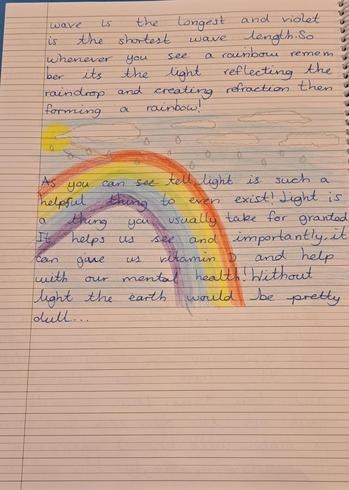 wave is the longest and violet
is the shortest wave length. So
whenever you see a rainbow remem
ber its the light reflecting the
raindrop and creating refraction then
forming a rainbow!
As you can see tell, light is such a
helpful thing to even exist! Light is
a thing you usually take for granted
It helps us see and importantly, it
can gave us vitamin D and help
with our mental health! Without
light the earth would be pretty
dull...